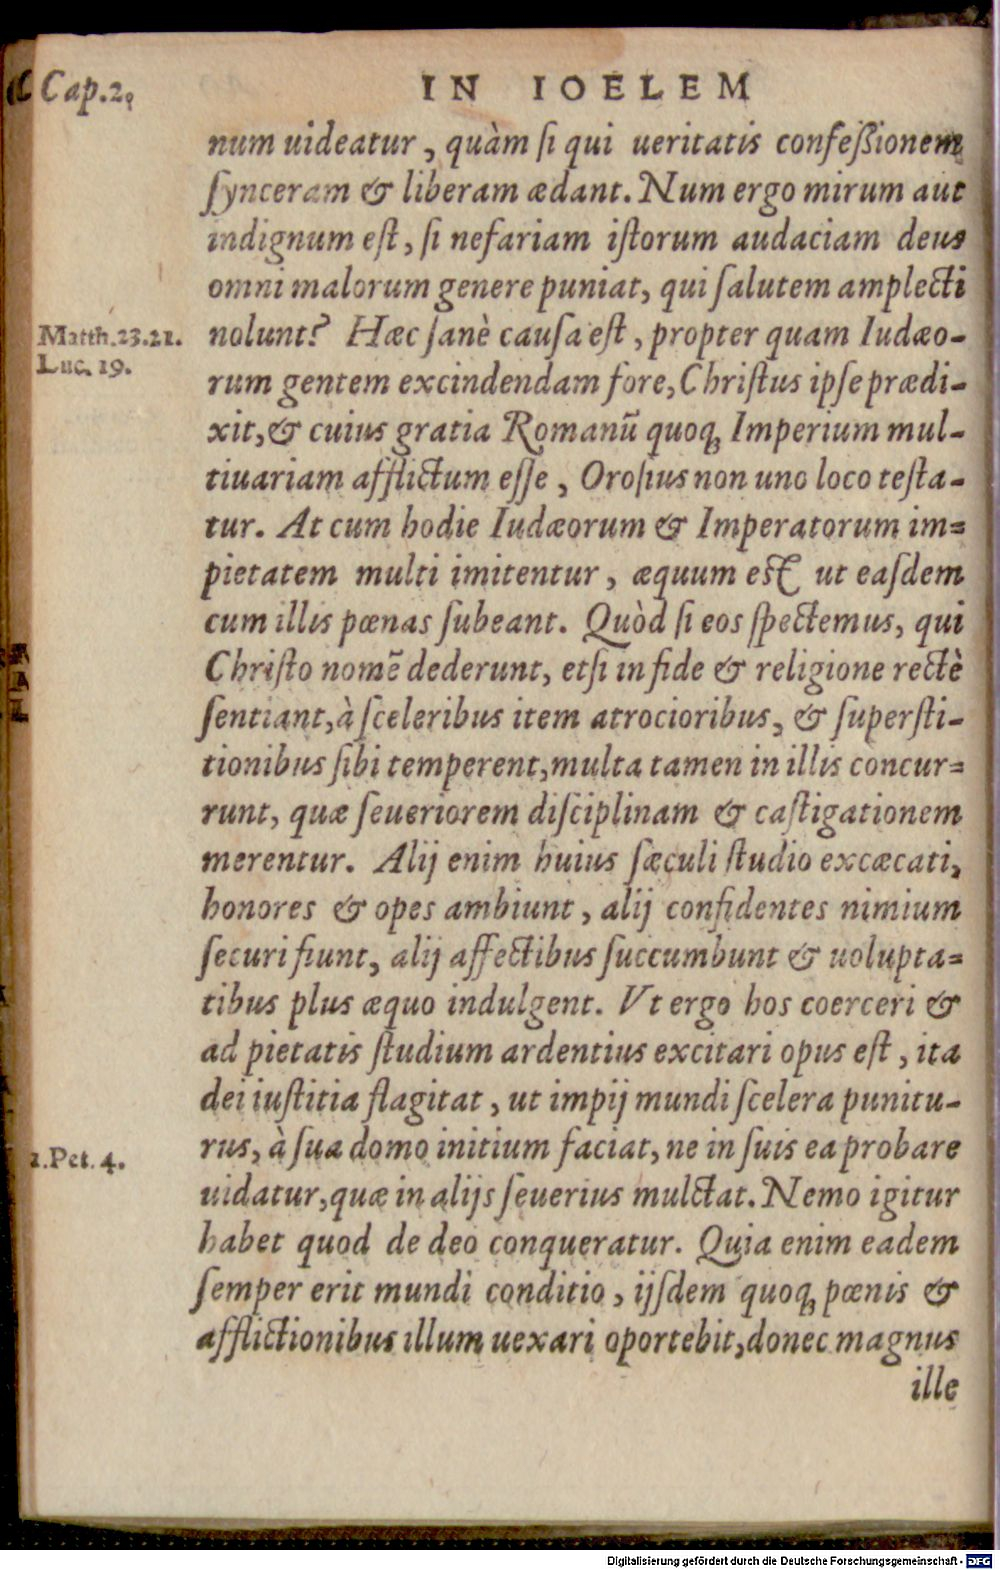 Cap.2.
IN IOELEM
num uideatur, quàm ſi qui ueritatis confeßionem
ſynceram & liberam ædant. Num ergo mirum aut
indignum eſt, ſi nefariam iſtorum audaciam deus
omni malorum genere puniat, qui ſalutem amplecti
Matth.23.21.
nolunt? Hæc ſanè cauſa eſt, propter quam Iudæo-
Luc. 19.
rum gentem excindendam fore, Chriſtus ipſe prædi-
xit, & cuius gratia Romanũ quoqȝ Imperium mul-
tiuariam afflictum eſſe, Oroſius non uno loco teſta-
tur. At cum hodie Iudæorum & Imperatorum im=
pietatem multi imitentur, æquum est ut eaſdem
cum illis pœnas ſubeant. Quòd ſi eos ſpectemus, qui
Chriſto nomẽ dederunt, etſi in fide & religione rectè
ſentiant, à ſceleribus item atrocioribus, & ſuperſti-
tionibus ſibi temperent, multa tamen in illis concur=
runt, quæ ſeueriorem diſciplinam & caſtigationem
merentur. Alij enim huius ſæculi ſtudio excæcati,
honores & opes ambiunt, alij confidentes nimium
ſecuri fiunt, alij affectibus ſuccumbunt & uolupta=
tibus plus æquo indulgent. Vt ergo hos coerceri &
ad pietatis ſtudium ardentius excitari opus eſt, ita
dei iuſtitia flagitat, ut impij mundi ſcelera punitu-
1.Pet. 4.
rus, à ſua domo initium faciat, ne in ſuis ea probare
uidatur, quæ in alijs ſeuerius mulctat. Nemo igitur
habet quod de deo conqueratur. Quia enim eadem
ſemper erit mundi conditio, ijſdem quoqȝ pœnis &
afflictionibus illum uexari oportebit, donec magnus
ille
Digitalisierung gefördert durch die Deutsche Forschungsgemeinschaft - DFG